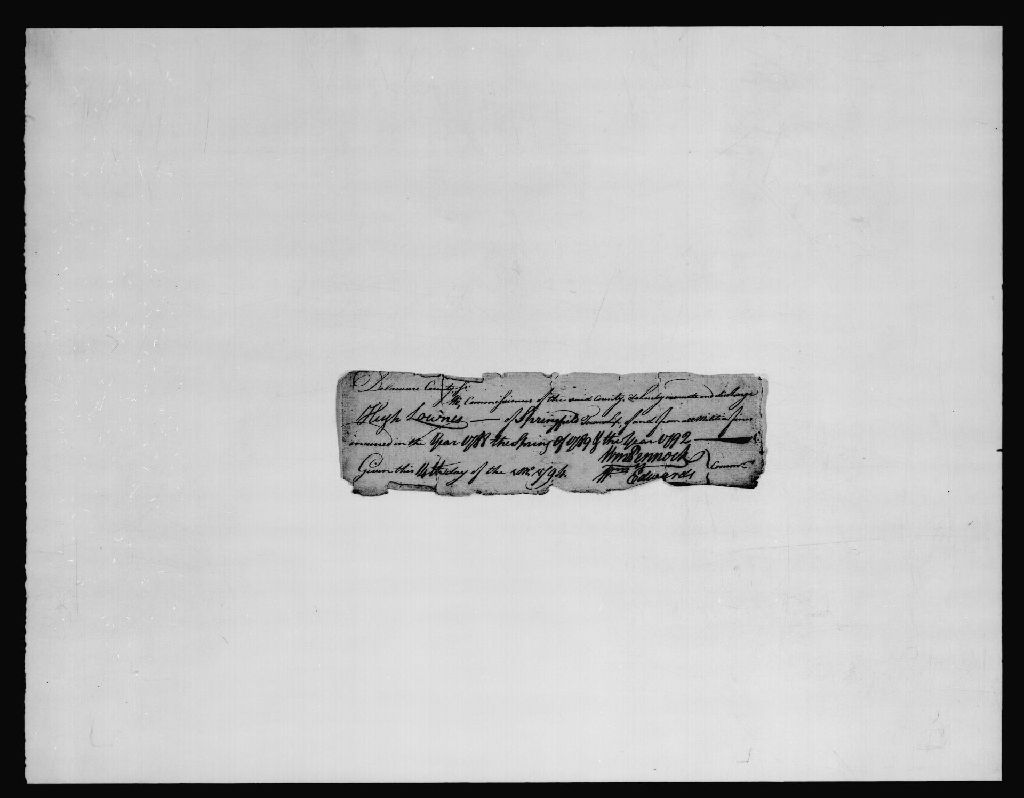 Delaware County Ss.
We, Commissioners of the said County, do hereby exonerate and discharge
Hugh Lownes — of Springfield Township, of and from all Militia fines
incurred in the Year 1788 the Spring of 1789 & the Year 1792
Given this 14th day of the 1794.
Wm Pennock
Wm Edwards
Commrs